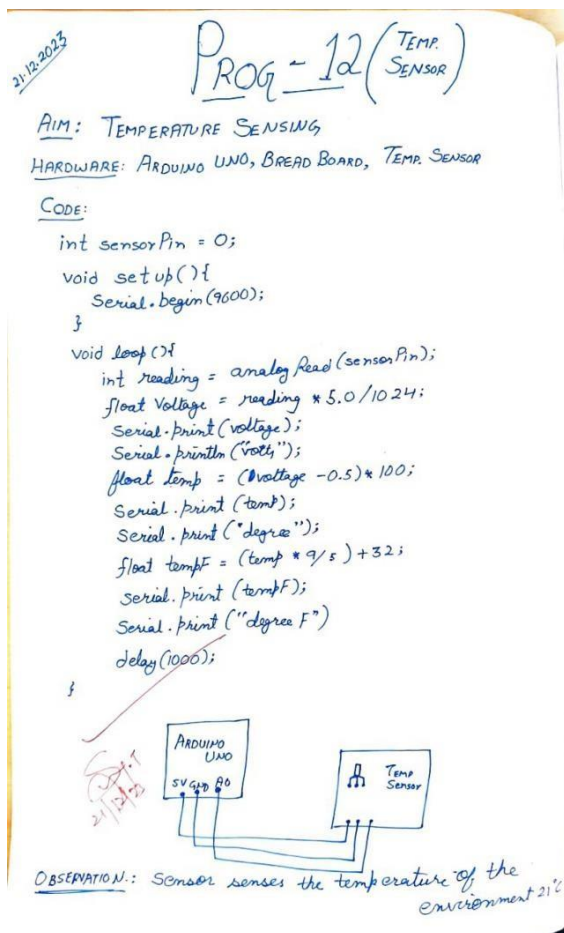 21.12.2023
PROG - 12 (TEMP. SENSOR)
AIM: TEMPERATURE SENSING
HARDWARE: ARDUINO UNO, BREAD BOARD, TEMP. SENSOR
CODE:
int sensorPin = 0;
void setup(){
Serial.begin(9600);
}
void loop(){
int reading = analog Read(sensorPin);
float Voltage = reading * 5.0/1024;
Serial.print(voltage);
Serial.println("volts");
float temp = (voltage -0.5)* 100;
Serial.print (temp);
Serial.print ("degree");
float tempF = (temp * 9/5)+32;
Serial.print (tempF);
Serial.print ("degree F")
delay(1000);
}
ARDUINO
UNO
5V GND A0
TEMP
Sensor
21/12/23
OBSERVATION.: Sensor senses the temperature of the
environment 21°C